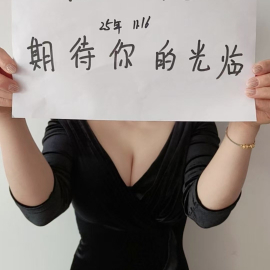 25年 11.16
期待你的光临